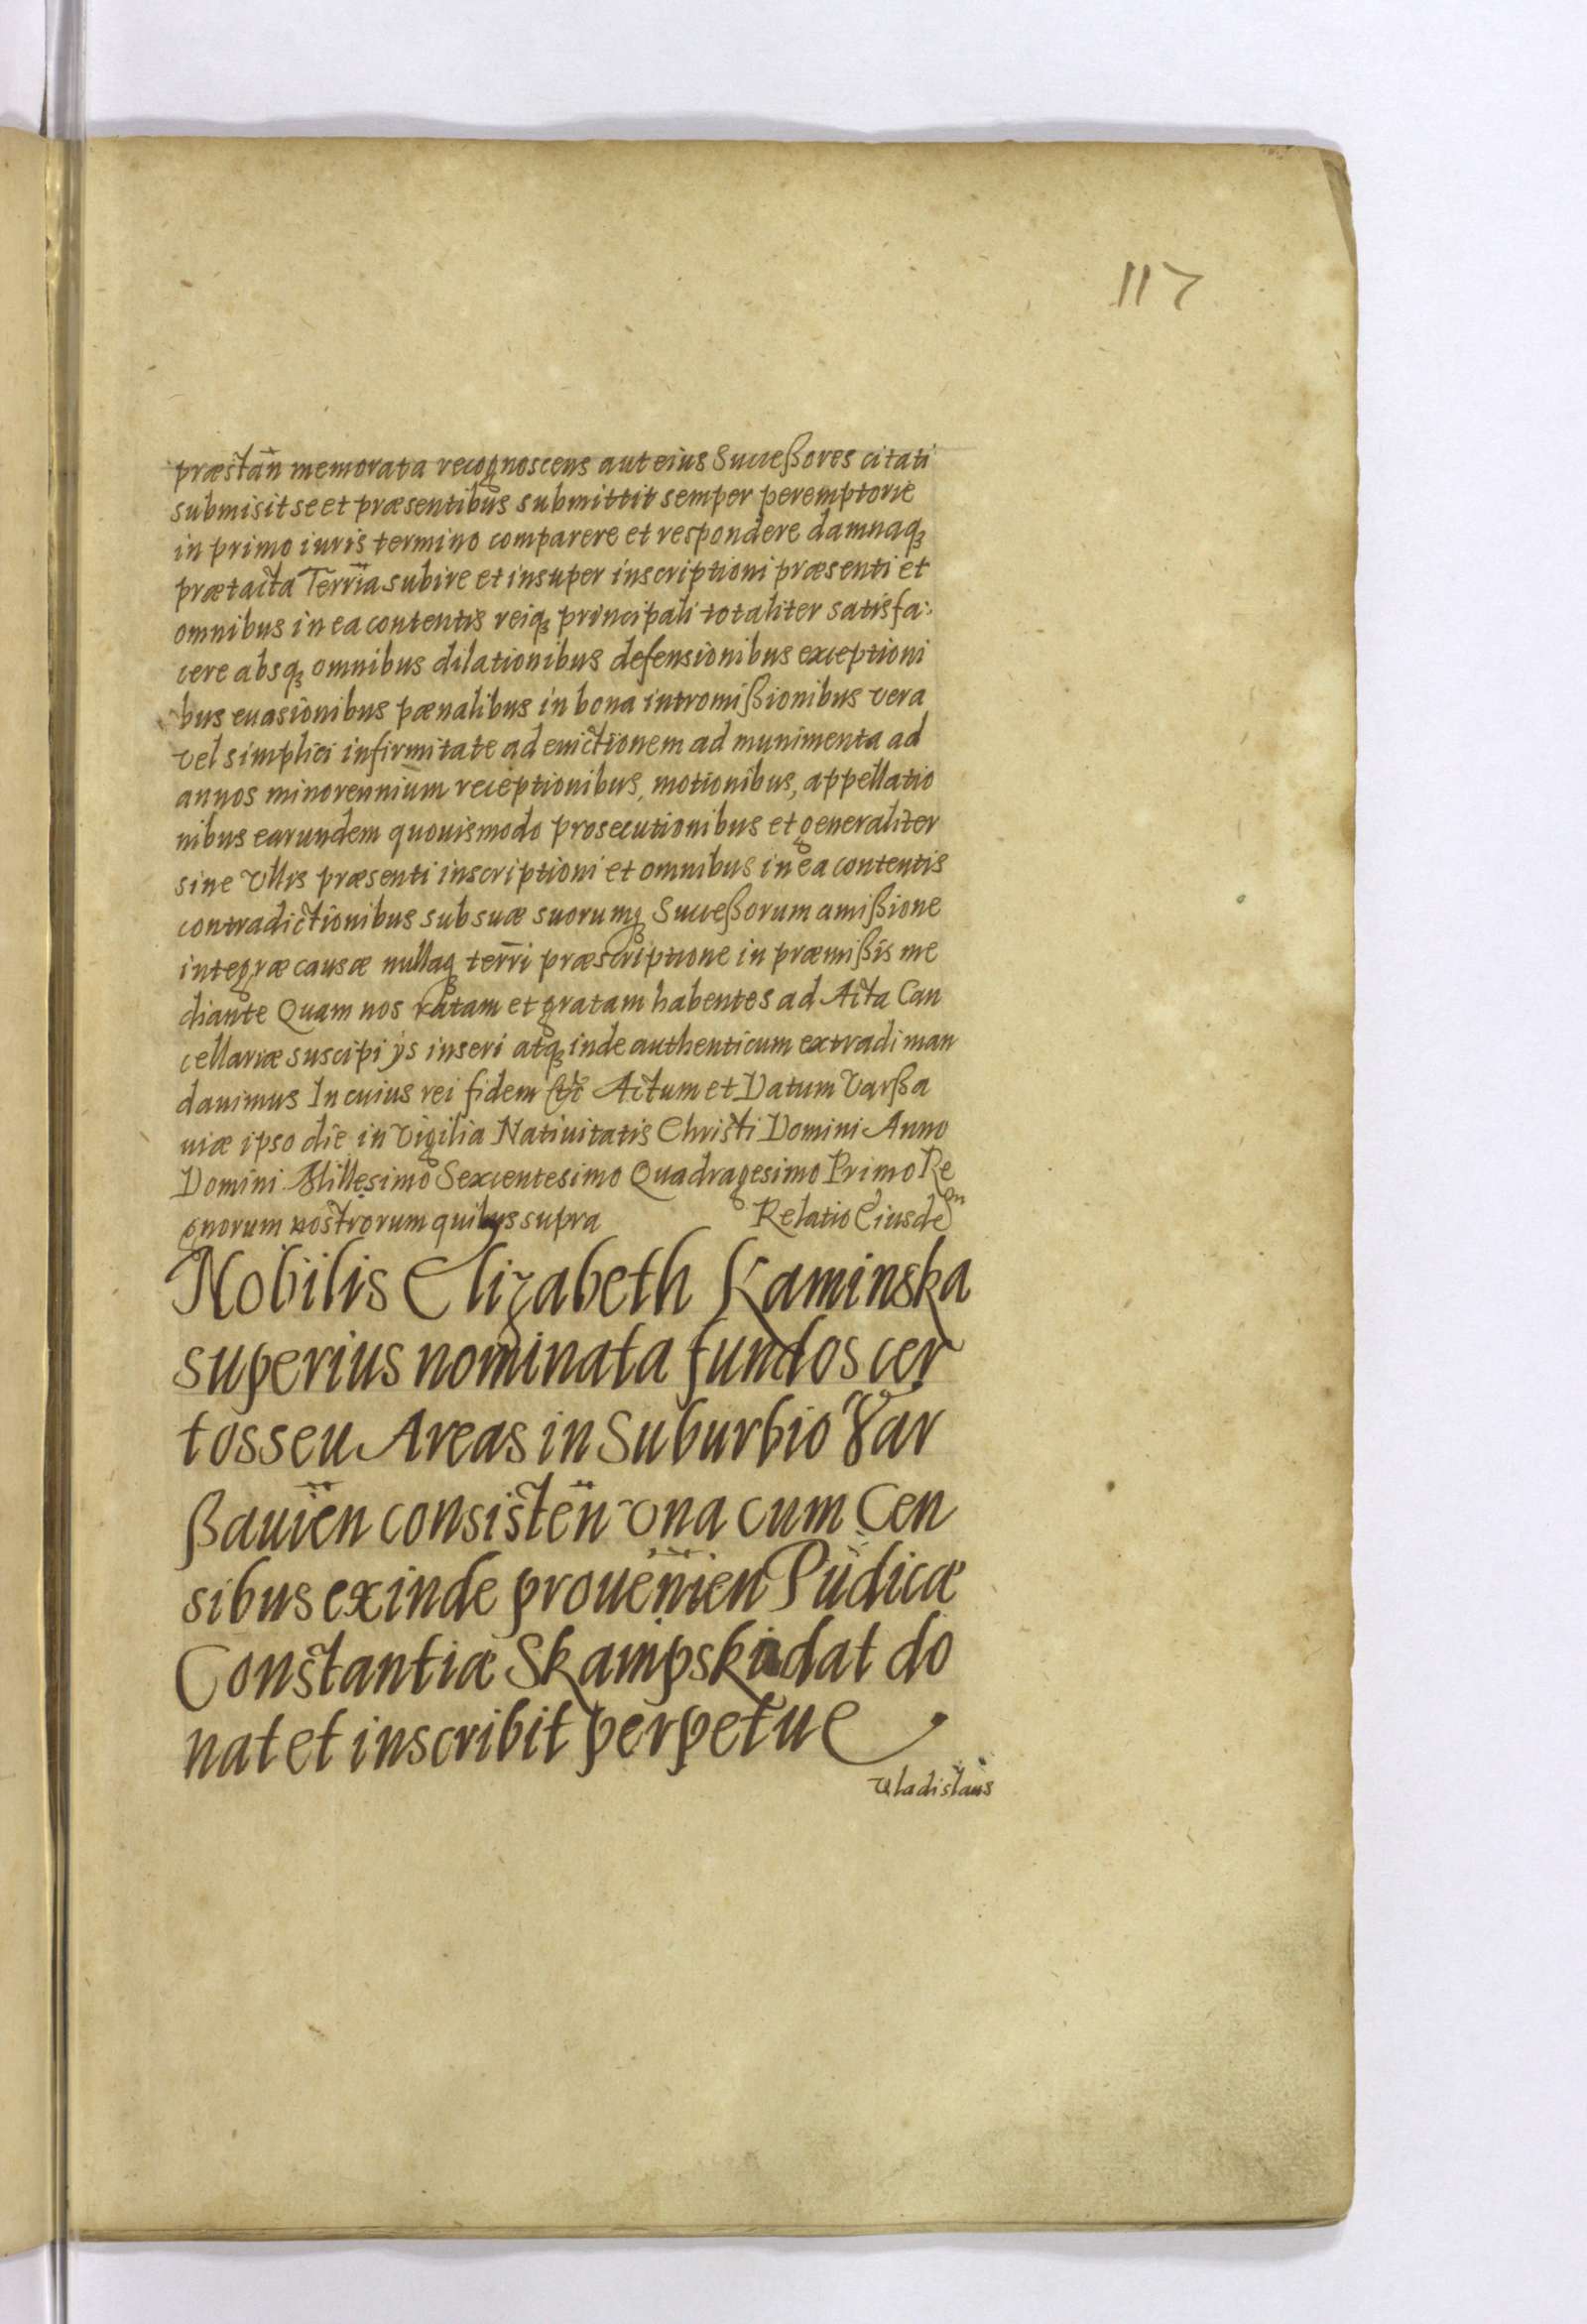 117
præstan̄ memorata recognoscens aut eius Succeßores citati
submisit se et præsentibus submittit semper peremptorie
in primo iuris termino comparere et respondere damnaqꝫ
prætacta Terr̄ia subire et insuper inscriptioni præsenti et
omnibus in ea contentis reiqꝫ principali totaliter satisfa:
cere absqꝫ omnibus dilationibus defensionibus exceptioni
bus euasionibus pænalibus in bona intromißionibus vera
vel simplici infirmitate ad euictionem ad munimenta ad
annos minorennium receptionibus, motionibus, appellatio
nibus earundem quouismodo prosecutionibus et generaliter
sine vllis præsenti inscriptioni et omnibus in ea contentis
contradictionibus sub suæ suorumqꝫ Succeßorum amißione
integræ causæ nullaqꝫ terr̄i præscriptione in præmißis me
diante Quam nos ratam et gratam habentes ad Acta Can
cellariæ suscipi ÿs inseri atqꝫ inde authenticum extradi man
dauimus In cuius rei fidem etc̄ Actum et Datum Varßa
uiæ ipso die in Vigilia Natiuitatis Christi Domini Anno
Domini Millesimo Sexcentesimo Quadragesimo Primo Re
gnorum nostrorum quibus supra Relatio Eiusdem
Nobilis Elizabeth Kaminska
superius nominata fundos cer
tos seu Areas in Suburbio Var
ßauien̄ consisten̄ vna cum Cen
sibus exinde prouenien̄ Pudicæ
Constantiæ Skampski dat do
nat et inscribit perpetue
Vladislaus